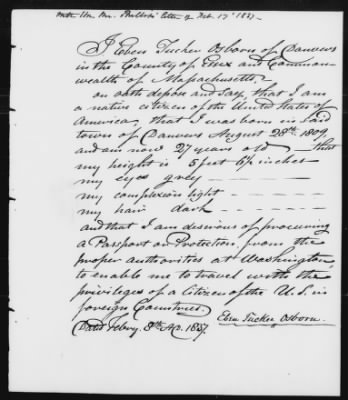 with Hon. Mr. Phillips' letter of Feb. 17th 1837.
I Eben Tucker Osborn of Danvers
in the County of Essex and Common-
wealth of Massachusetts
on oath depose and say, that I am
a native citizen of the United States of
America, that I was born in said
town of Danvers August 28th 1809,
and am now 27 years old — that
my height is 5 feet 6½ inches
my eyes grey
my complexion light
my hair dark
and that I am desirous of procuring
a Passport or Protection from the
proper authorities at Washington
to enable me to travel with the
privileges of a Citizen of the U.S. in
foreign Countries.
Dated Febry. 8th A.D. 1837.
Eben Tucker Osborn.